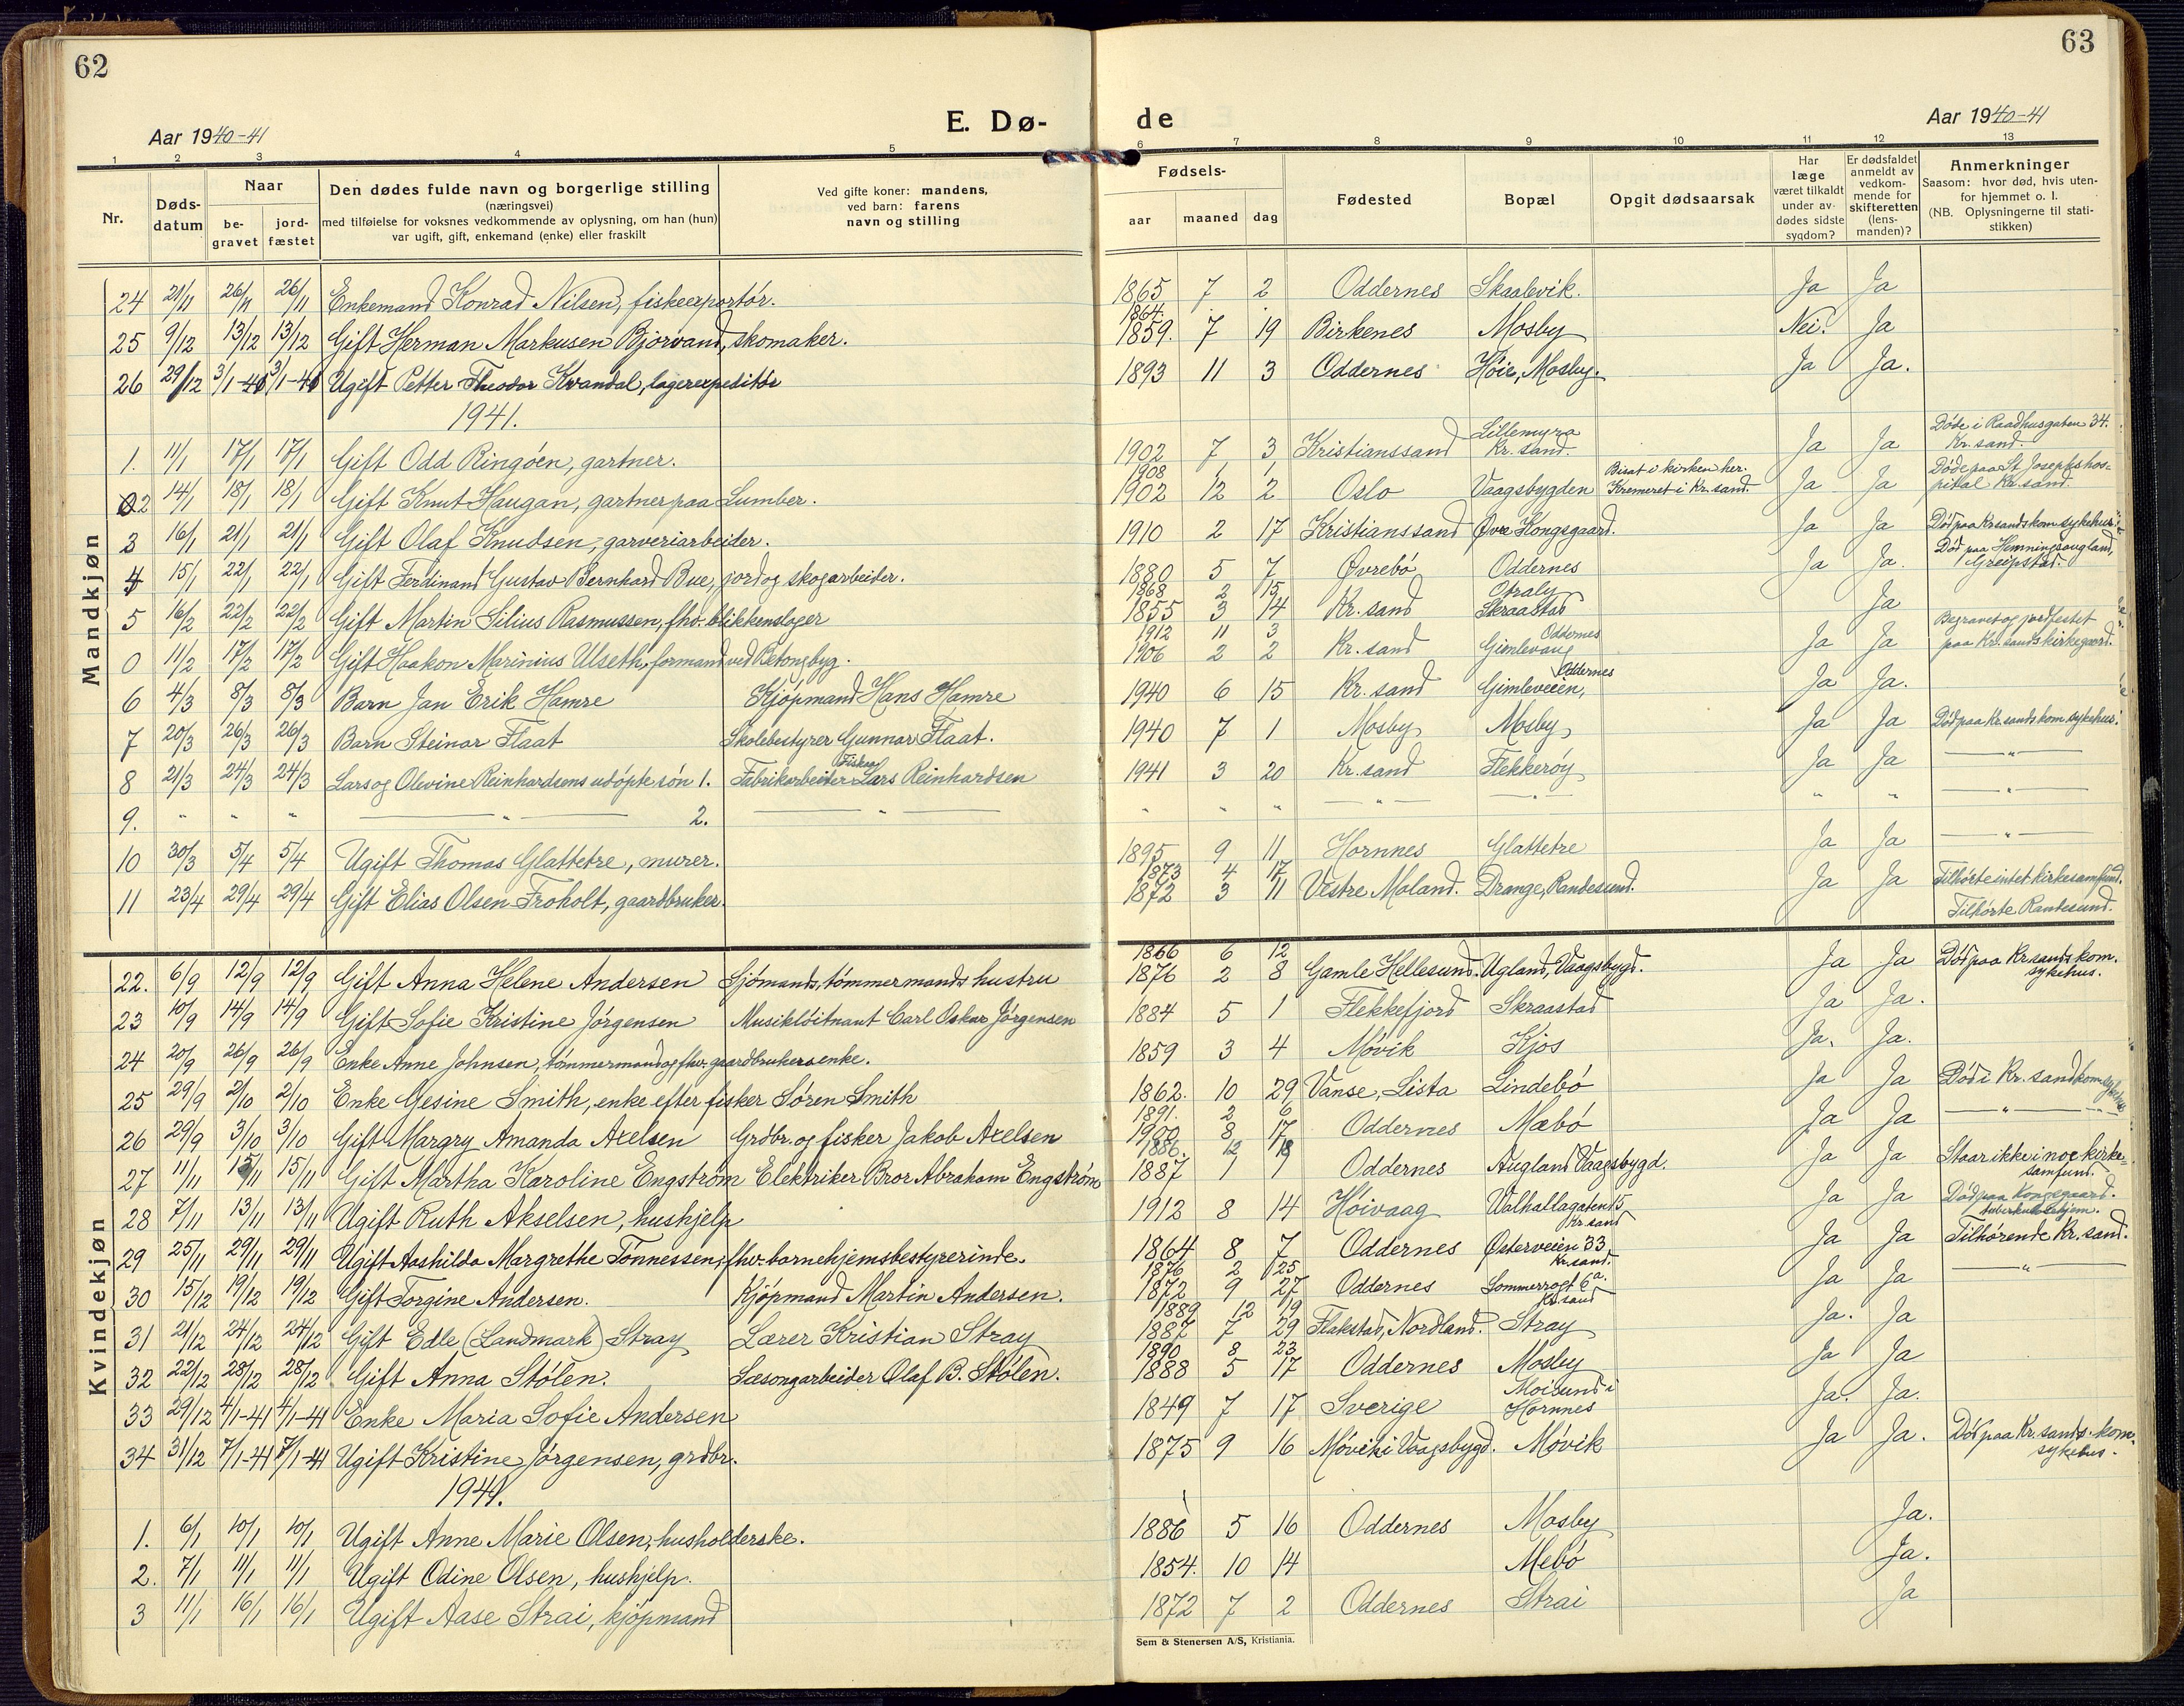 62
63
Aar 1940-41
E. Dø-
de
Aar 1940-41
1 2 3 4 5 6 7 8 9 10 11 12 13
Nr.
Døds-
datum
Naar
be-
gravet
jord-
fæstet
Den dødes fulde navn og borgerlige stilling
(næringsvei)
med tilføielse for voksnes vedkommende av oplysning, om han (hun)
var ugift, gift, enkemand (enke) eller fraskilt
Ved gifte koner: mandens,
ved barn: farens
navn og stilling
Fødsels-
aar maaned dag
Fødested
Bopæl
Opgit dødsaarsak
Har
læge
været tilkaldt
under av-
dødes sidste
sygdom?
Er dødsfaldet
anmeldt av
vedkom-
mende for
skifteretten
(lens-
manden)?
Anmerkninger
Saasom: hvor død, hvis uten-
for hjemmet o. l.
(NB. Oplysningerne til stati-
stikken)
Mandkjøn
24 21/11 26/11 26/11 Enkemand Konrad Nilsen, fiskeexportør. 1865 7 2 Oddernes Skaalevik. Ja Ja
1864.
25 9/12 13/12 13/12 Gift Herman Markusen Bjørvand, skomaker. 1859. 7 19 Birkenes Mosby Nei. Ja
26 29/12 3/1-40 3/1-40 Ugift Petter Theodor Kvandal, lagerexpeditør 1893 11 3 Oddernes Høie, Mosby. Ja Ja.
1941.
1. 11/1 17/1 17/1 Gift Odd Ringøen, gartner. 1902 7 3 Kristianssand Lillemyra Kr. sand. Ja Ja Døde i Raadhusgaten 34. Kr. sand.
1908 1
2 14/1 18/1 18/1 Gift Knut Haugan, gartner paa Lumber. 1902 12 2 Oslo Vaagsbygden Bisat i kirken her. Kremeret i Kr. sand. Ja Ja Døde paa St Josephs hos-pital Kr. sand.
3 16/1 21/1 21/1 Gift Olaf Knudsen, garveriarbeider. 1910 2 17 Kristianssand Øvre Kongsgaard. Ja Ja Død paa Kr sands kom sykehus.
4 15/1 22/1 22/1 Gift Ferdinand Gustav Bernhard Bue, jord og skogarbeider. 1880 5 7 Øvrebø Oddernes Ja Ja. Død paa Hemningsaugland, Greipstad.
1868 2 15
5 16/2 22/2 22/2 Gift Martin Silius Rasmussen, fhv. blikkenslager 1855 3 14 Kr. sand Otraly Skraastad Ja
1912 11 3
0 11/2 17/2 17/2 Gift Haakon Marinius Ulseth, formand ved Betongbyg. 1906 2 2 Kr. sand Gimlevang Oddernes Ja Ja Begravet og jordfestet paa Kr. sands kirkegaard.
6 4/3 8/3 8/3 Barn Jan Erik Hamre Kjøpmand Hans Hamre 1940 6 15 Kr. sand Gimleveien, Oddernes Ja Ja.
7 20/3 26/3 26/3 Barn Steinar Flaat Skolebestyrer Gunnar Flaat. 1940 7 1 Mosby Mosby Ja Ja Død paa Kr. sands kom. sykehus.
8 21/3 24/3 24/3 Lars og Olevine Reinhardsens udøpte søn 1. Fabrikarbeider Fiskaa Lars Reinhardsen 1941 3 20 Kr. sand Flekkerøy Ja Ja — " —
9. " " " — " — 2. — " — " " " — " — — " — " " — " —
10 30/3 5/4 5/4 Ugift Thomas Glattetre, murer. 1895 9 11 Hornnes Glattetre Ja Ja — " —
1873 4 17
11 23/4 29/4 29/4 Gift Elias Olsen Froholt, gaardbruker. 1872 3 11 Vestre Moland. Drange, Randesund. Ja Ja Tilhørte intet kirkesamfund. Tilhørte Randesund.
Kvindekjøn
1866 6 12
22. 6/9 12/9 12/9 Gift Anna Helene Andersen Sjømands, tømmermands hustru 1876 2 8 Gamle Hellesund. Ugland, Vaagsbygd. Ja Ja Død paa Kr sands kom. sykehus.
23 10/9 14/9 14/9 Gift Sofie Kristine Jørgensen Musikløitnant Carl Oskar Jørgensen 1884 5 1 Flekkefjord Skraastad Ja Ja.
24 20/9 26/9 26/9 Enke Anne Johnsen, tømmermand og fhv. gaardbrukers enke. 1859 3 4 Møvik Kjos Ja. Ja.
25 29/9 2/10 2/10 Enke Gesine Smith, enke efter fisker Søren Smith 1862. 10 29 Vanse, Lista Lindebø Ja Ja Død i Kr. sand kom sykehus
1891. 2 6
26 29/9 3/10 3/10 Gift Margry Amanda Axelsen Grdbr. og fisker Jakob Axelsen 1900 8 17 Oddernes Mæbø Ja Ja — " —
1886. 12 18
27 11/11 15/11 15/11 Gift Martha Karoline Engstrøm Elektriker Bror Abraham Engstrøm 1887 1 1 Oddernes Augland Vaagsbygd. Ja Ja Staar ikke i noe kirke-samfund.
28 7/11 13/11 13/11 Ugift Ruth Akselsen, huskjelp 1912 8 14 Høivaag Valhallagaten 15 Kr. sand Ja Ja Død paa Kongsgaard. tuberkulosehjem.
29 25/11 29/11 29/11 Ugift Aashilda Margrethe Tønnessen, fhv. barnehjemsbestyrerinde. 1864 8 7 Oddernes Østerveien 33 Kr. sand. Ja Ja Tilhørende Kr. sand.
1876 2 25
30 15/12 19/12 19/12 Gift Torgine Andersen. Kjøpmand Martin Andersen. 1872 9 27 Oddernes Sommerrogt 6a. Kr. sand Ja Ja — " —
1889 12 19
31 21/12 24/12 24/12 Gift Edle (Landmark) Stray Lærer Kristian Stray 1887 7 29 Flakstad, Nordland. Stray Ja. Ja
1890 8 23
32 22/12 28/12 28/12 Gift Anna Stølen. Sæsongarbeider Olaf B. Stølen. 1888 5 17 Oddernes Mosby Ja Ja
33 29/12 4/1-41 4/1-41 Enke Maria Sofie Andersen 1849 7 17 Sverige Moisund i Hornnes Ja. Ja.
34 31/12 7/1-41 7/1-41 Ugift Kristine Jørgensen, grdbr. 1875 9 16 Møvik i Vaagsbygd. Møvik Ja Ja. Død paa Kr. sands. kom. sykehus.
1941.
1. 6/1 10/1 10/1 Ugift Anne Marie Olsen, husholderske. 1886 5 16 Oddernes Mosby Ja.
2. 7/1 11/1 11/1 Ugift Odine Olsen, hushjelp. 1854. 10 14 Mebø Ja.
3 11/1 16/1 16/1 Ugift Aase Strai, kjøpmand 1872 7 2 Oddernes Strai Ja
Sem & Stenersen A/S, Kristiania.